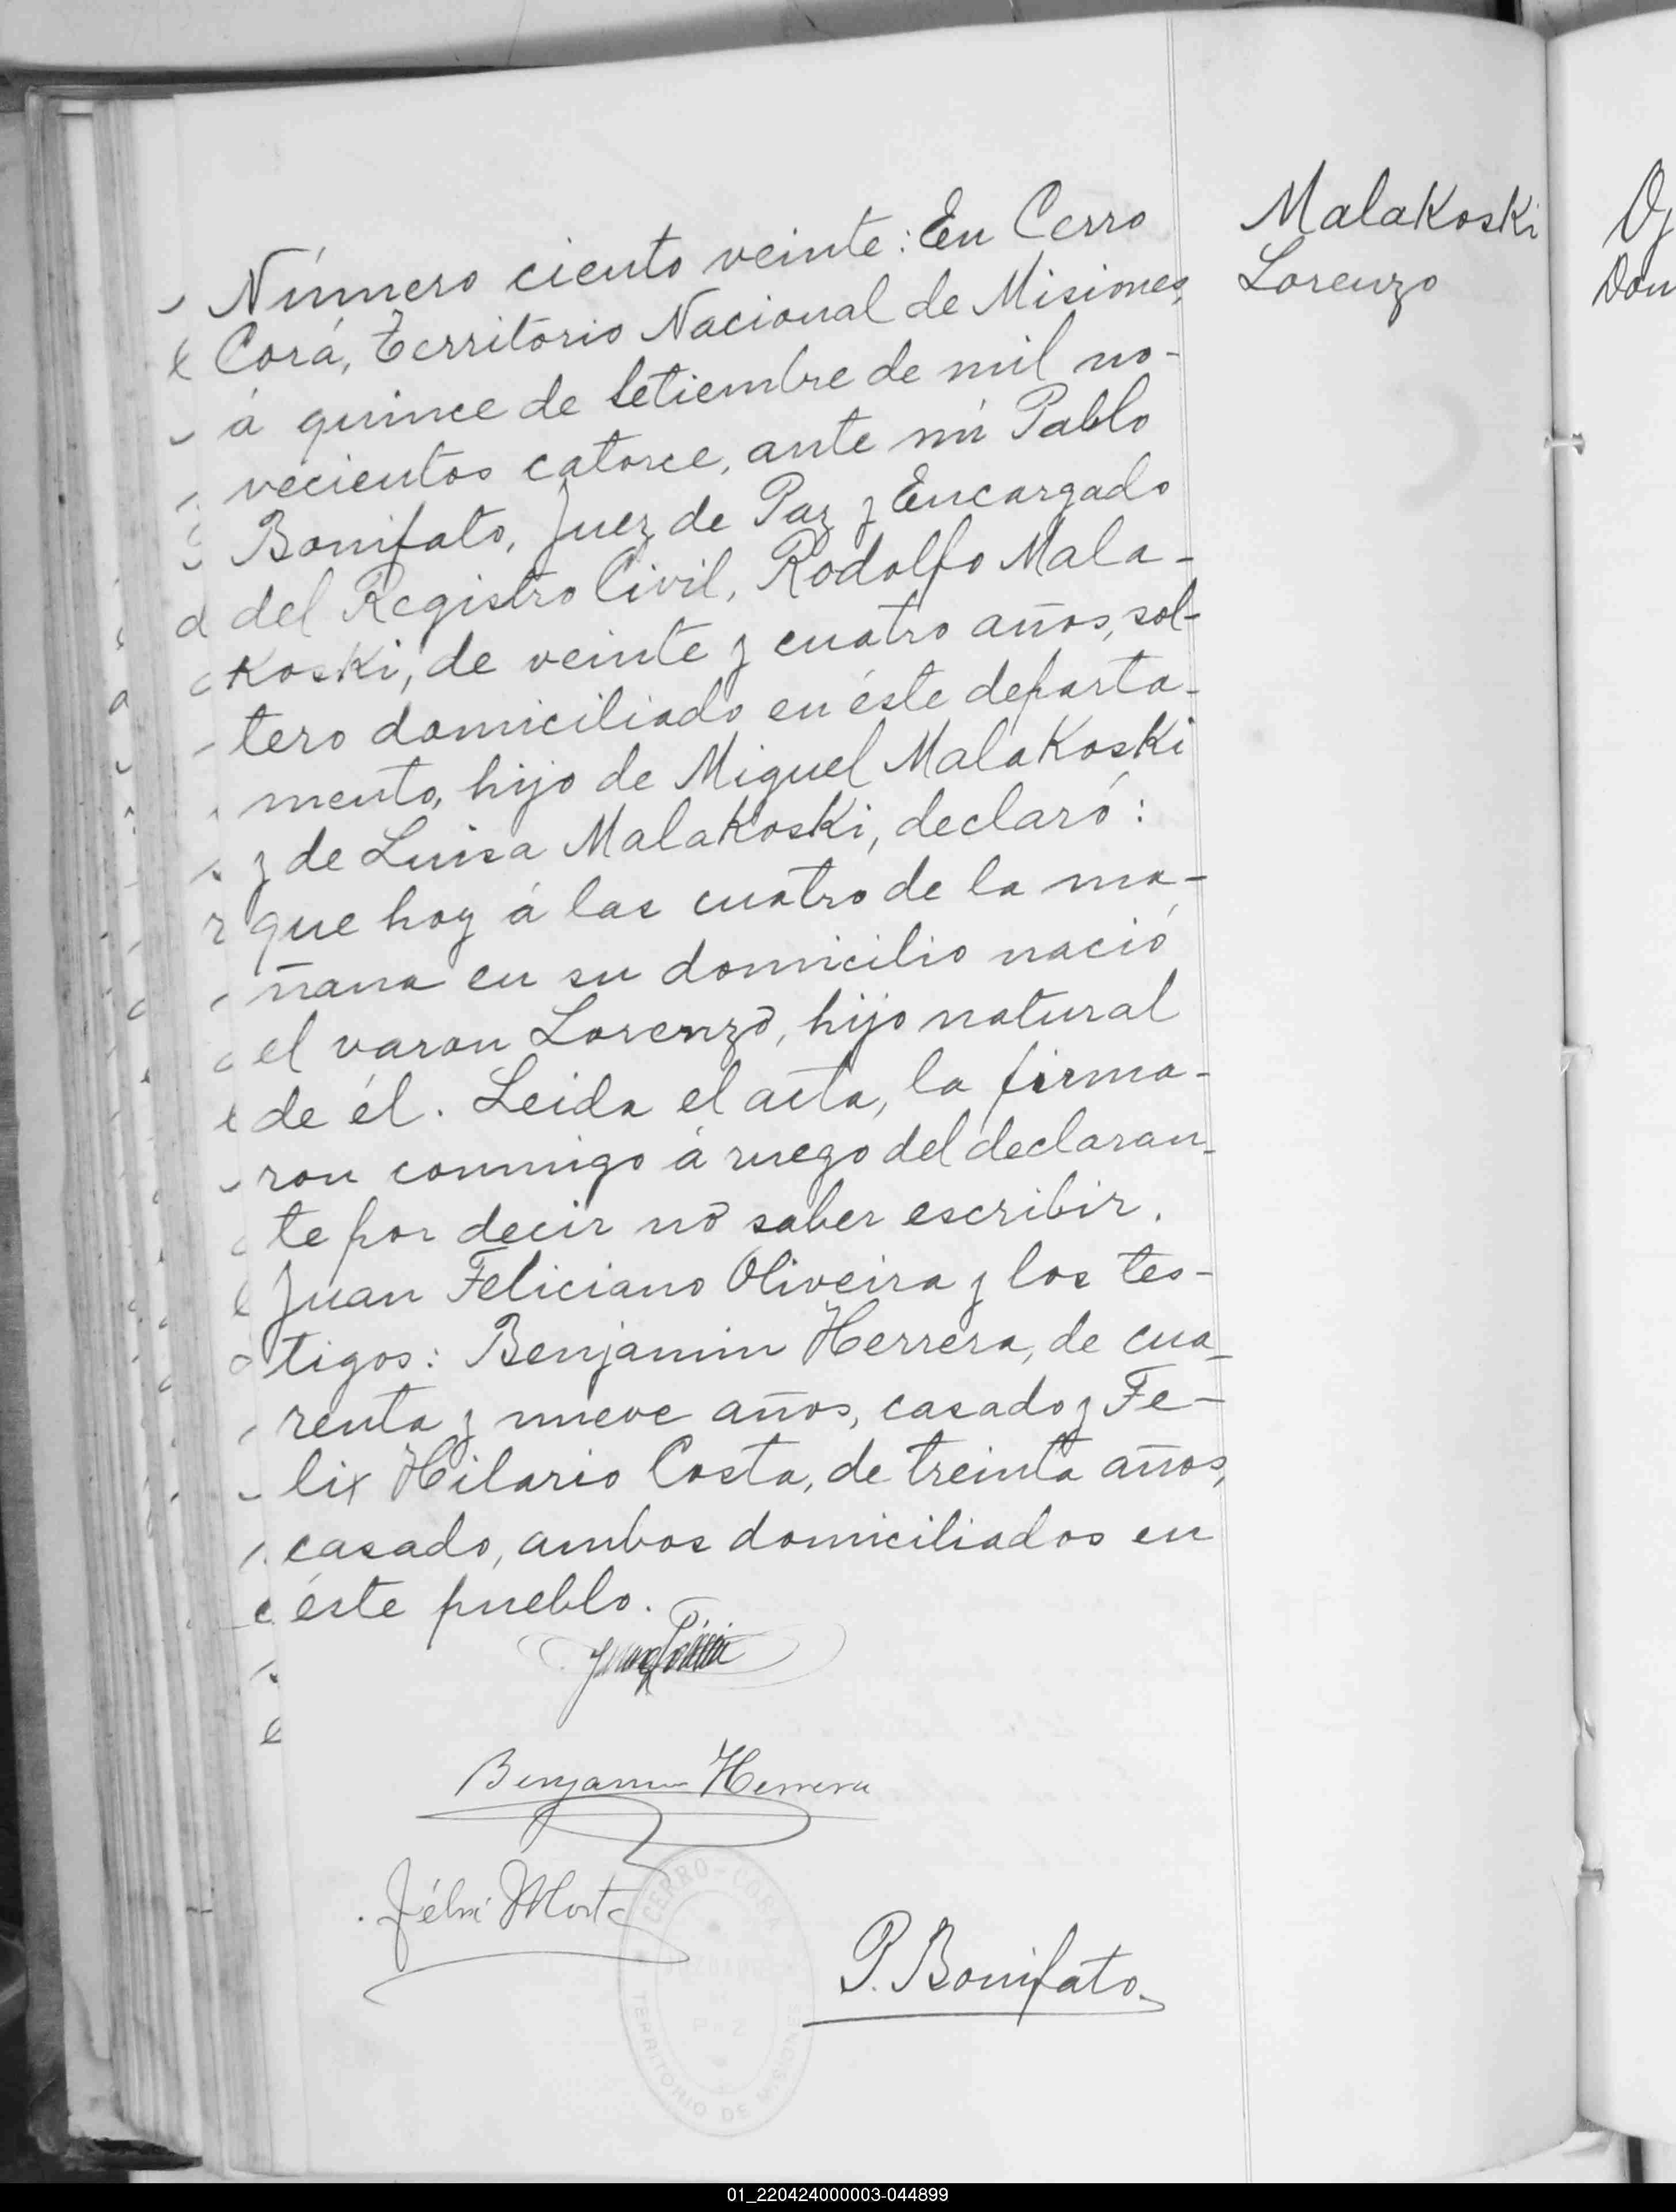 Número ciento veinte: En Cerro
Corá, Territorio Nacional de Misiones,
á quince de Setiembre de mil no-
vecientos catorce, ante mi Pablo
Bonifato, Juez de Paz y Encargado
del Registro Civil, Rodolfo Mala-
Koski, de veinte y cuatro años, sol-
tero domiciliado en éste departa-
mento, hijo de Miguel MalaKoski
y de Luisa MalaKoski, declaró:
que hoy á las cuatro de la ma-
ñana en su domicilio nació
el varon Lorenzo, hijo natural
de él. Leida el acta, la firma-
ron conmigo á ruego del declaran-
te por decir no saber escribir.
Juan Feliciano Oliveira y los tes-
tigos: Benjamin Herrera, de cua-
renta y nueve años, casado y Fe-
lix Hilario Costa, de treinta años,
casado, ambos domiciliados en
éste pueblo.
Benjamin Herrera
P. Bonifato
CERRO-CORA
JUZGADO
PAZ
TERRITORIO DE MISIONES
MalaKoski
Lorenzo
01_220424000003-044899